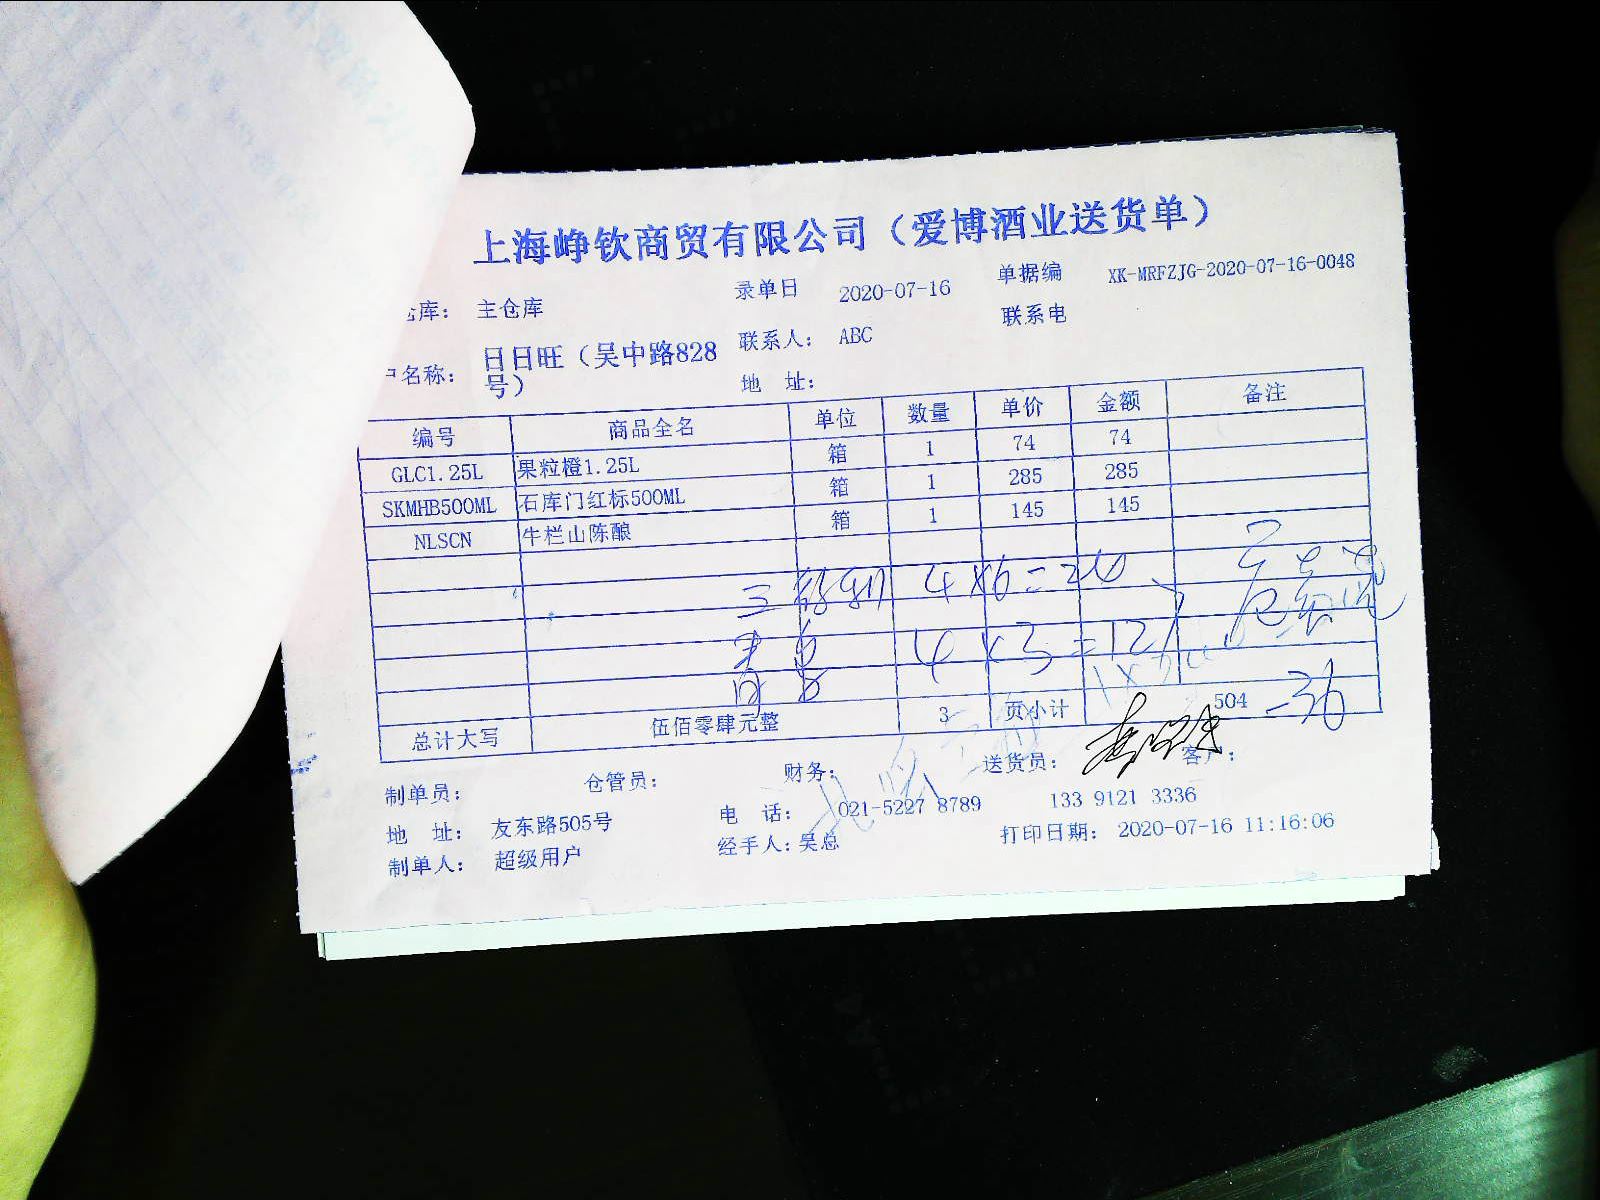 上海峥钦商贸有限公司（爱博酒业送货单）
仓库： 主仓库 录单日 2020-07-16 单据编 XK-MRFZJG-2020-07-16-0048
户名称： 日日旺（吴中路828号） 联系人： ABC 联系电
地 址：
编号 商品全名 单位 数量 单价 金额 备注
GLC1.25L 果粒橙1.25L 箱 1 74 74
SKMHB500ML 石库门红标500ML 箱 1 285 285
NLSCN 牛栏山陈酿 箱 1 145 145
4×6=24
4×3=12
总计大写 伍佰零肆元整 3 页小计 504 -36
制单员： 仓管员： 财务： 送货员： 客户：
地 址： 友东路505号 电 话： 021-5227 8789 133 9121 3336
制单人： 超级用户 经手人：吴总 打印日期： 2020-07-16 11:16:06